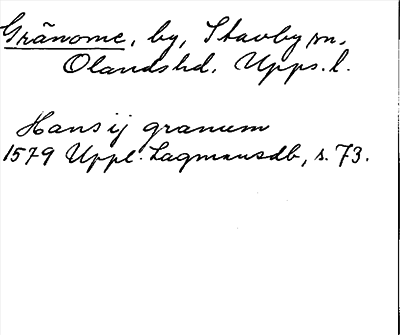 Gränome, by, Stavby sn,
Olandshd. Upps. l.
Hans ij granum
1579 Uppl. Lagmansdb, s. 73.